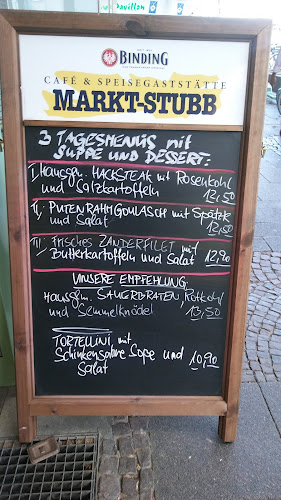 Pavillon
BINDING
CAFÉ & SPEISEGASTSTÄTTE
MARKT-STUBB
3 TAGESMENÜS mit
SUPPE UND DESSERT:
I. Hausgem. HACKSTEAK mit Rosenkohl
und Salzkartoffeln 12,50
II. PUTENRAHMGOULASCH mit Spätzle
und Salat 12,50
III. frisches ZANDERFILET mit
Butterkartoffeln und Salat 12,90
UNSERE EMPFEHLUNG:
Hausgem. SAUERBRATEN Rotkohl
und Semmelknödel 13,50
TORTELLINI mit
Schinkensahne Soße und 10,90
Salat